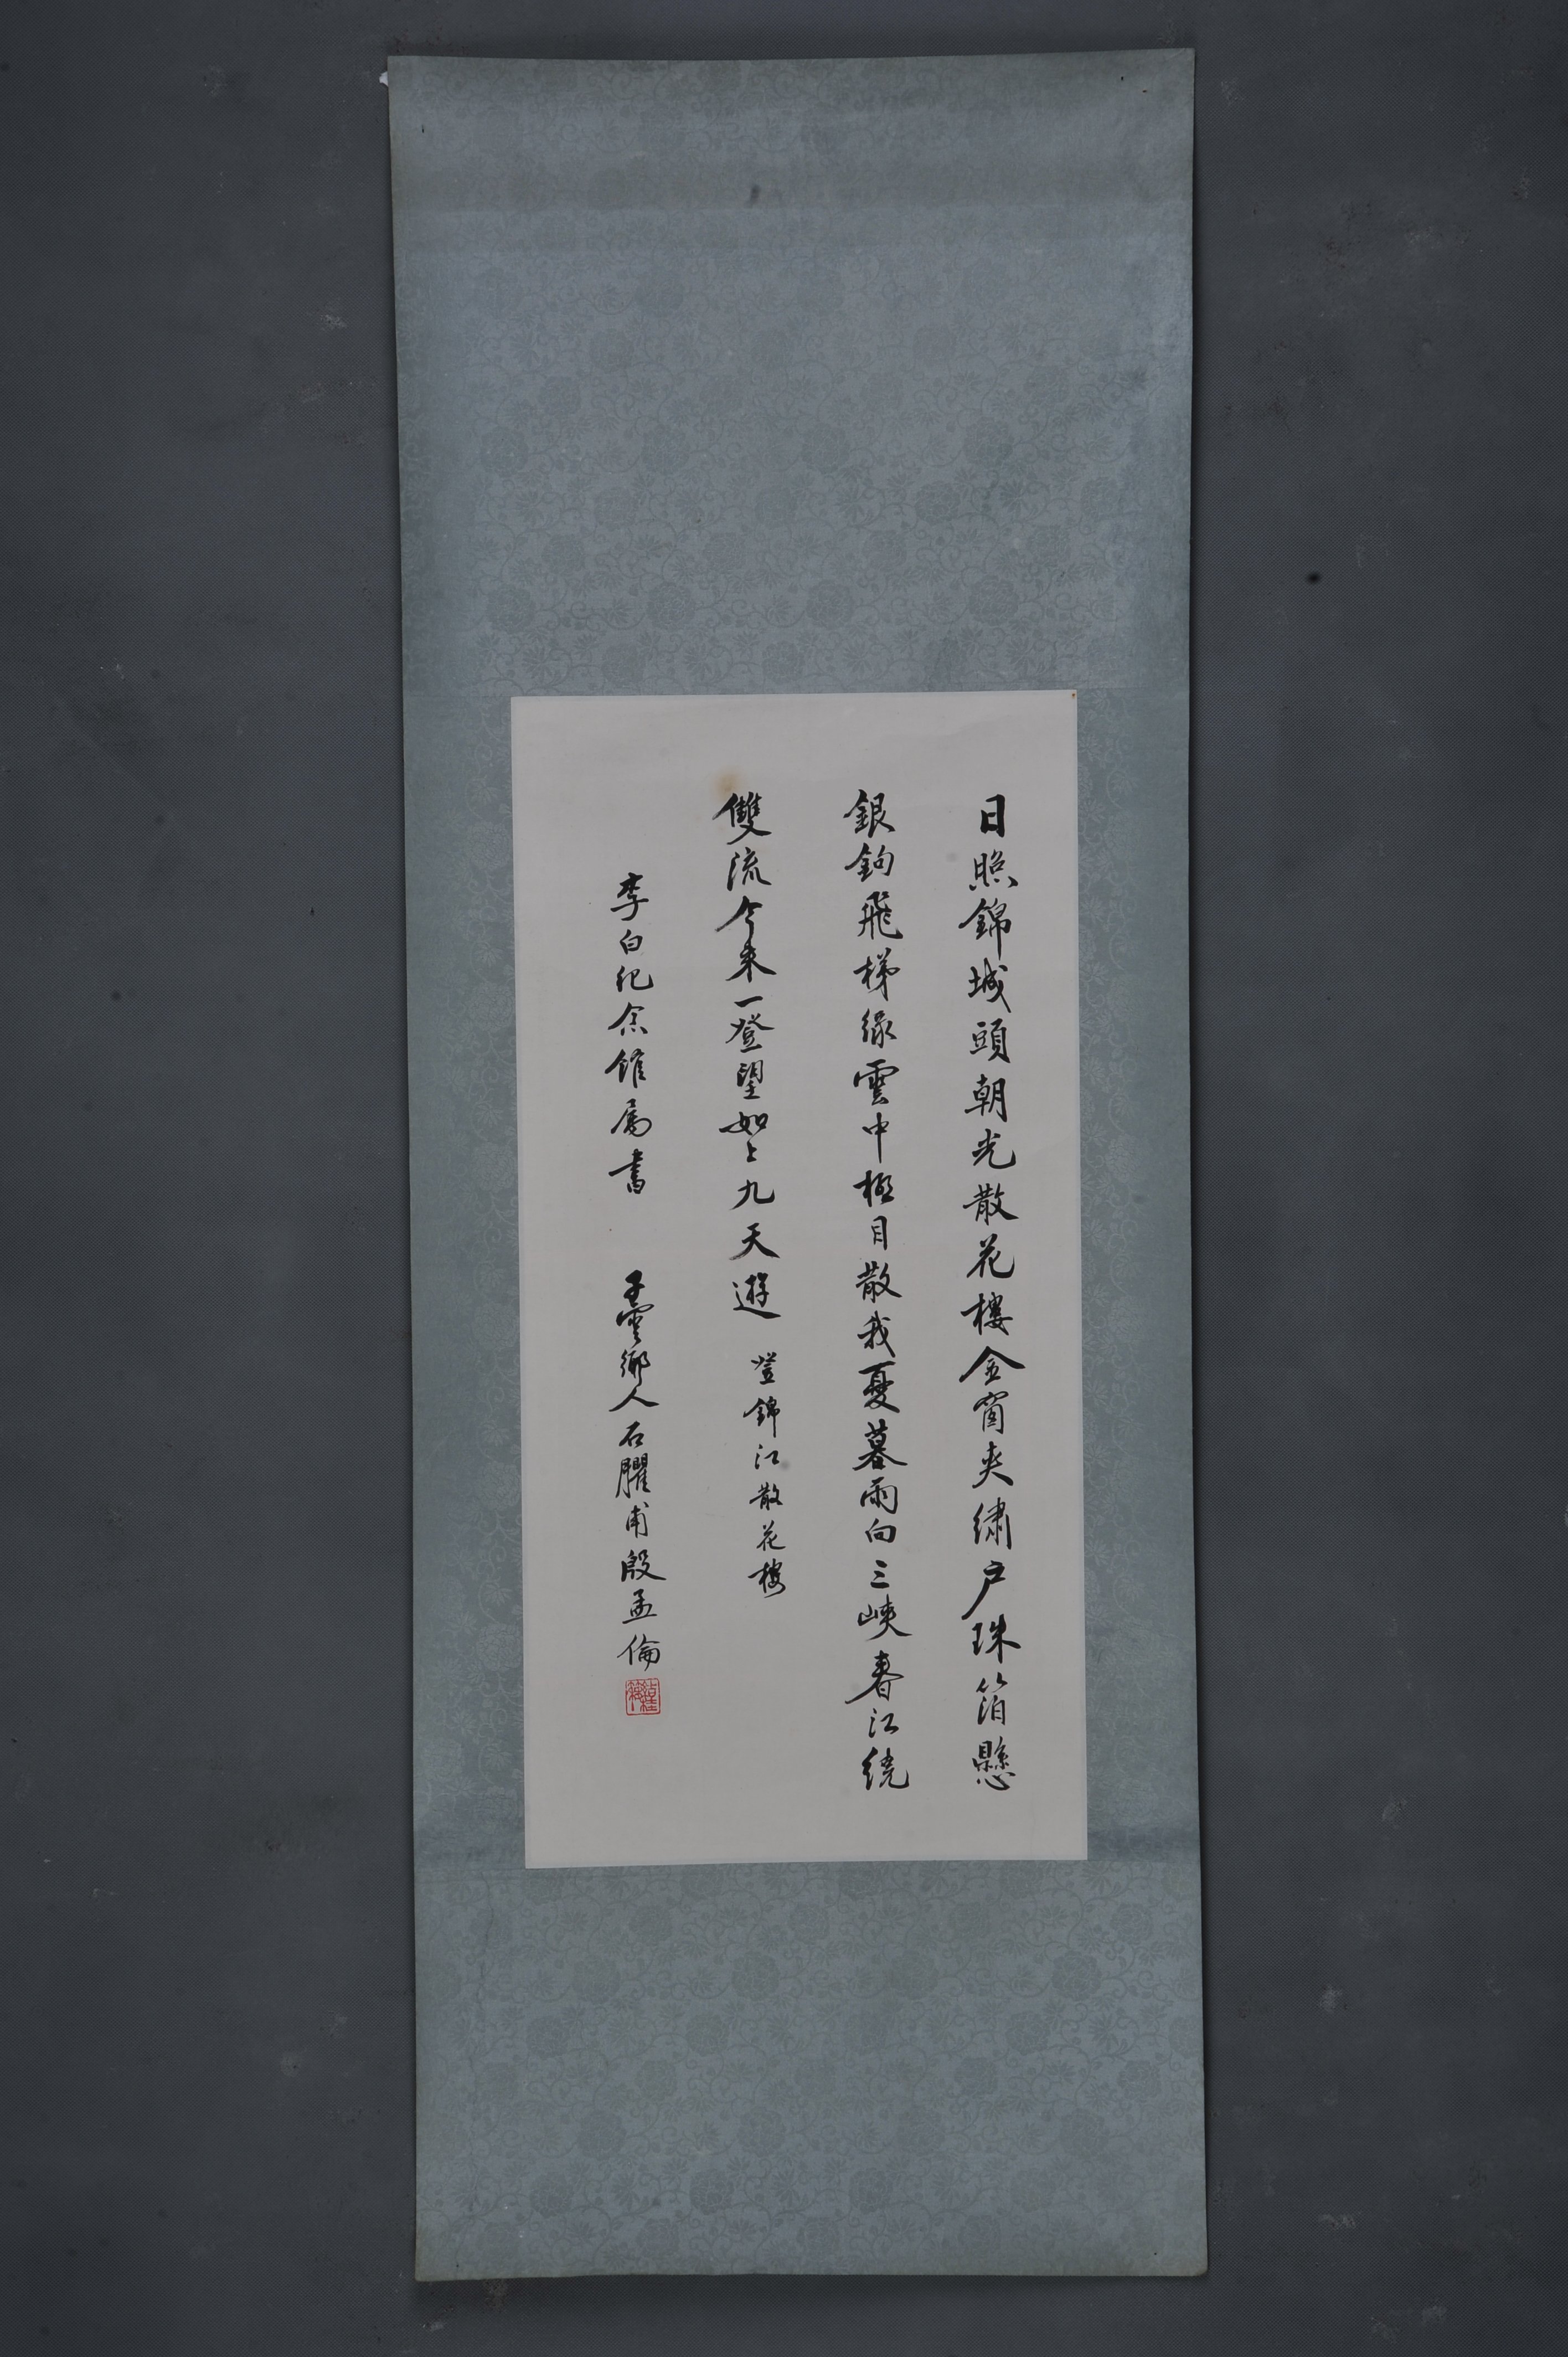 日照錦城頭朝光散花樓金窗夾繡戶珠箔懸
銀鉤飛梯綠雲中極目散我憂暮雨向三峽春江繞
雙流今來一登望如上九天遊
登錦江散花樓
李白紀念館屬書
子雲鄉人石臞甫殷孟倫